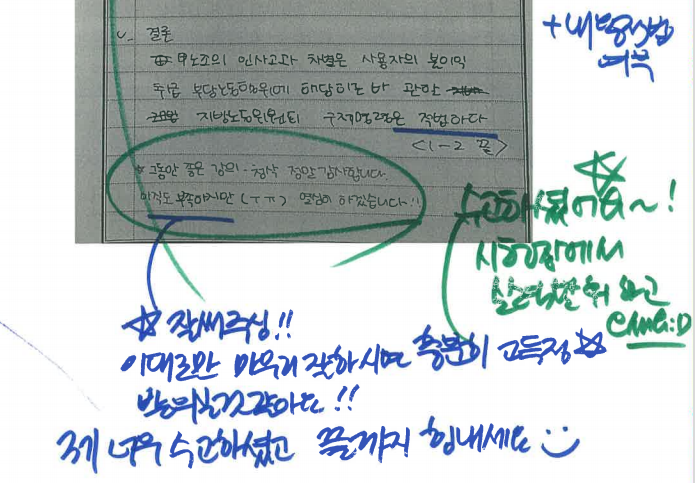 + 내부방법
여부
V. 결론
무노조의 인사고과 차별은 사용자의 불이익
취급 부당노동행위에 해당하는 바 관한
지방노동위원회 구제명령은 적법하다
<1-2 끝>
* 그동안 좋은 강의·첨삭 정말 감사합니다.
아직도 부족하지만 (ㅜㅠ) 열심히 하겠습니다!!
수고하셨어요~!
시험장에서
실력발휘 하고
☆ 잘써주심!!
이대로만 마무리 잘하시면 충분히 고득점☆
받으실것 같아요!!
3기 너무 수고하셨고 끝까지 힘내세요 :)